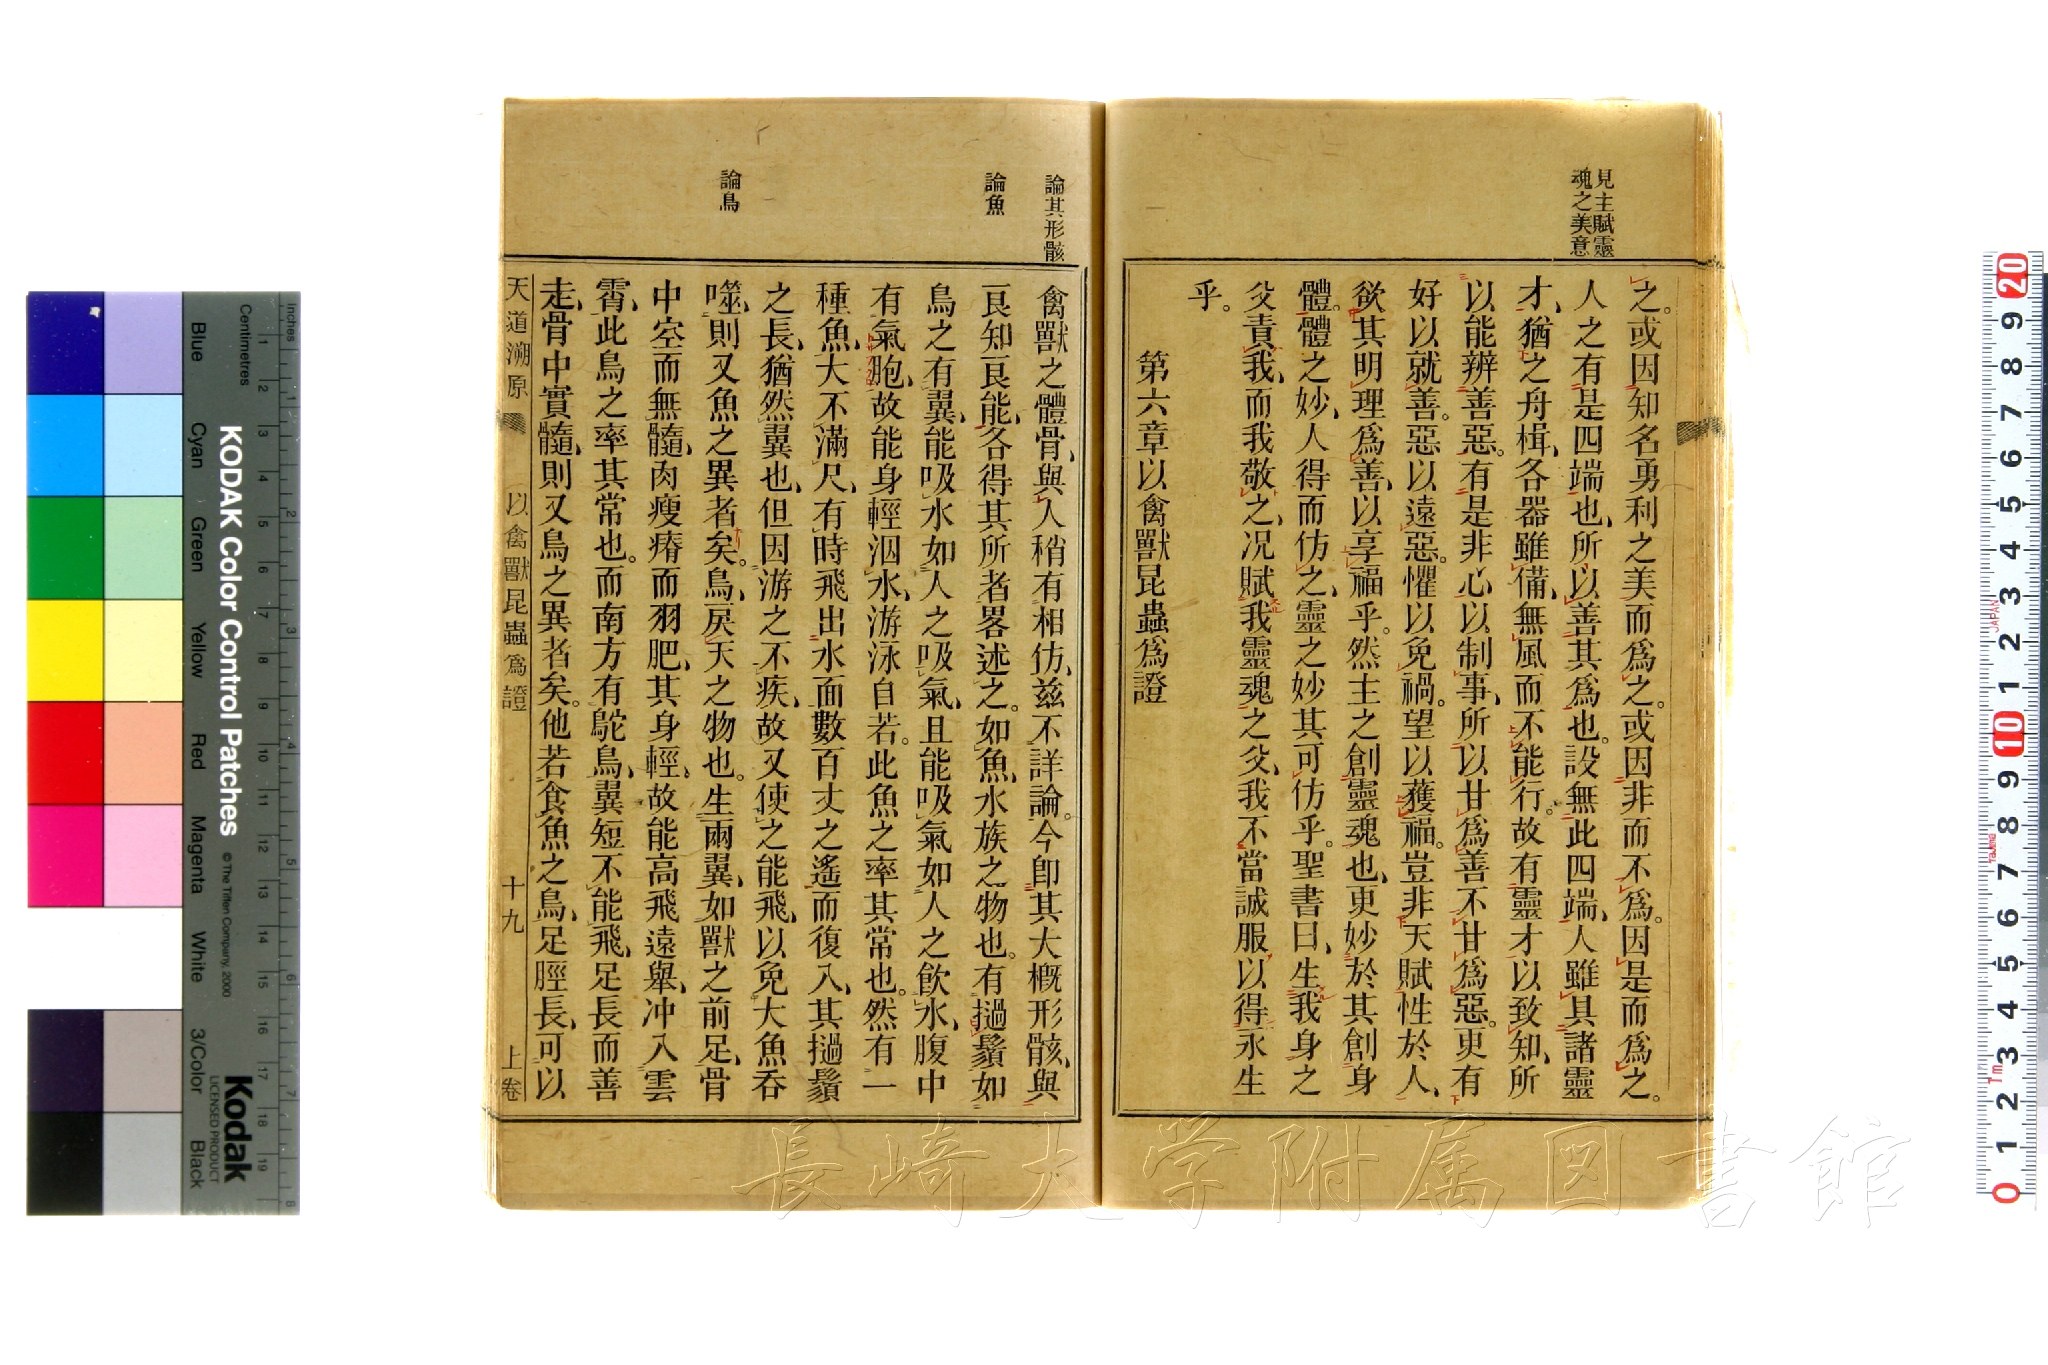 見主賦靈
魂之美意
之。或因知名勇利之美而爲之。或因非而不爲。因是而爲之。
人之有是四端也、所以善其爲也。設無此四端、人雖具諸靈
才、猶之舟楫、各器雖備、無風而不能行。故有靈才以致知、所
以能辨善惡。有是非心以制事、所以甘爲善不甘爲惡。更有
好以就善。惡以遠惡。懼以免禍。望以獲福。豈非天賦性於人、
欲其明理爲善、以享福乎。然主之創靈魂也、更妙於其創身
體。體之妙、人得而仿之、靈之妙其可仿乎。聖書曰、生我身之
父責我、而我敬之、况賦我靈魂之父、我不當誠服以得永生
乎。
第六章以禽獸昆蟲爲證
論其形骸
論魚
論鳥
禽獸之體骨、與人稍有相仿、兹不詳論。今卽其大概形骸、與
良知良能、各得其所者畧述之。如魚、水族之物也。有撾鬚如
鳥之有翼、能吸水如人之吸氣、且能吸氣如人之飲水、腹中
有氣胞、故能身輕泅水、游泳自若。此魚之率其常也。然有一
種魚、大不滿尺、有時飛出水面數百丈之遙而復入、其撾鬚
之長、猶然翼也、但因游之不疾、故又使之能飛、以免大魚吞
噬、則又魚之異者矣。鳥、戾天之物也。生兩翼、如獸之前足、骨
中空而無髓、肉瘦瘠而羽肥、其身輕、故能高飛遠舉、冲入雲
霄、此鳥之率其常也。而南方有鴕鳥、翼短不能飛、足長而善
走、骨中實髓、則又鳥之異者矣。他若食魚之鳥、足脛長、可以
天道溯原
以禽獸昆蟲爲證
十九
上卷
長崎大学附属図書館
Inches
Centimetres
KODAK Color Control Patches
© The Tiffen Company, 2000
Kodak
LICENSED PRODUCT
Blue
Cyan
Green
Yellow
Red
Magenta
White
3/Color
Black
1 2 3 4 5 6 7 8 9 10 11 12 13 14 15 16 17 18 19
1 2 3 4 5 6 7 8
20 9 8 7 6 5 4 3 2 1 10 9 8 7 6 5 4 3 2 1 0
JAPAN